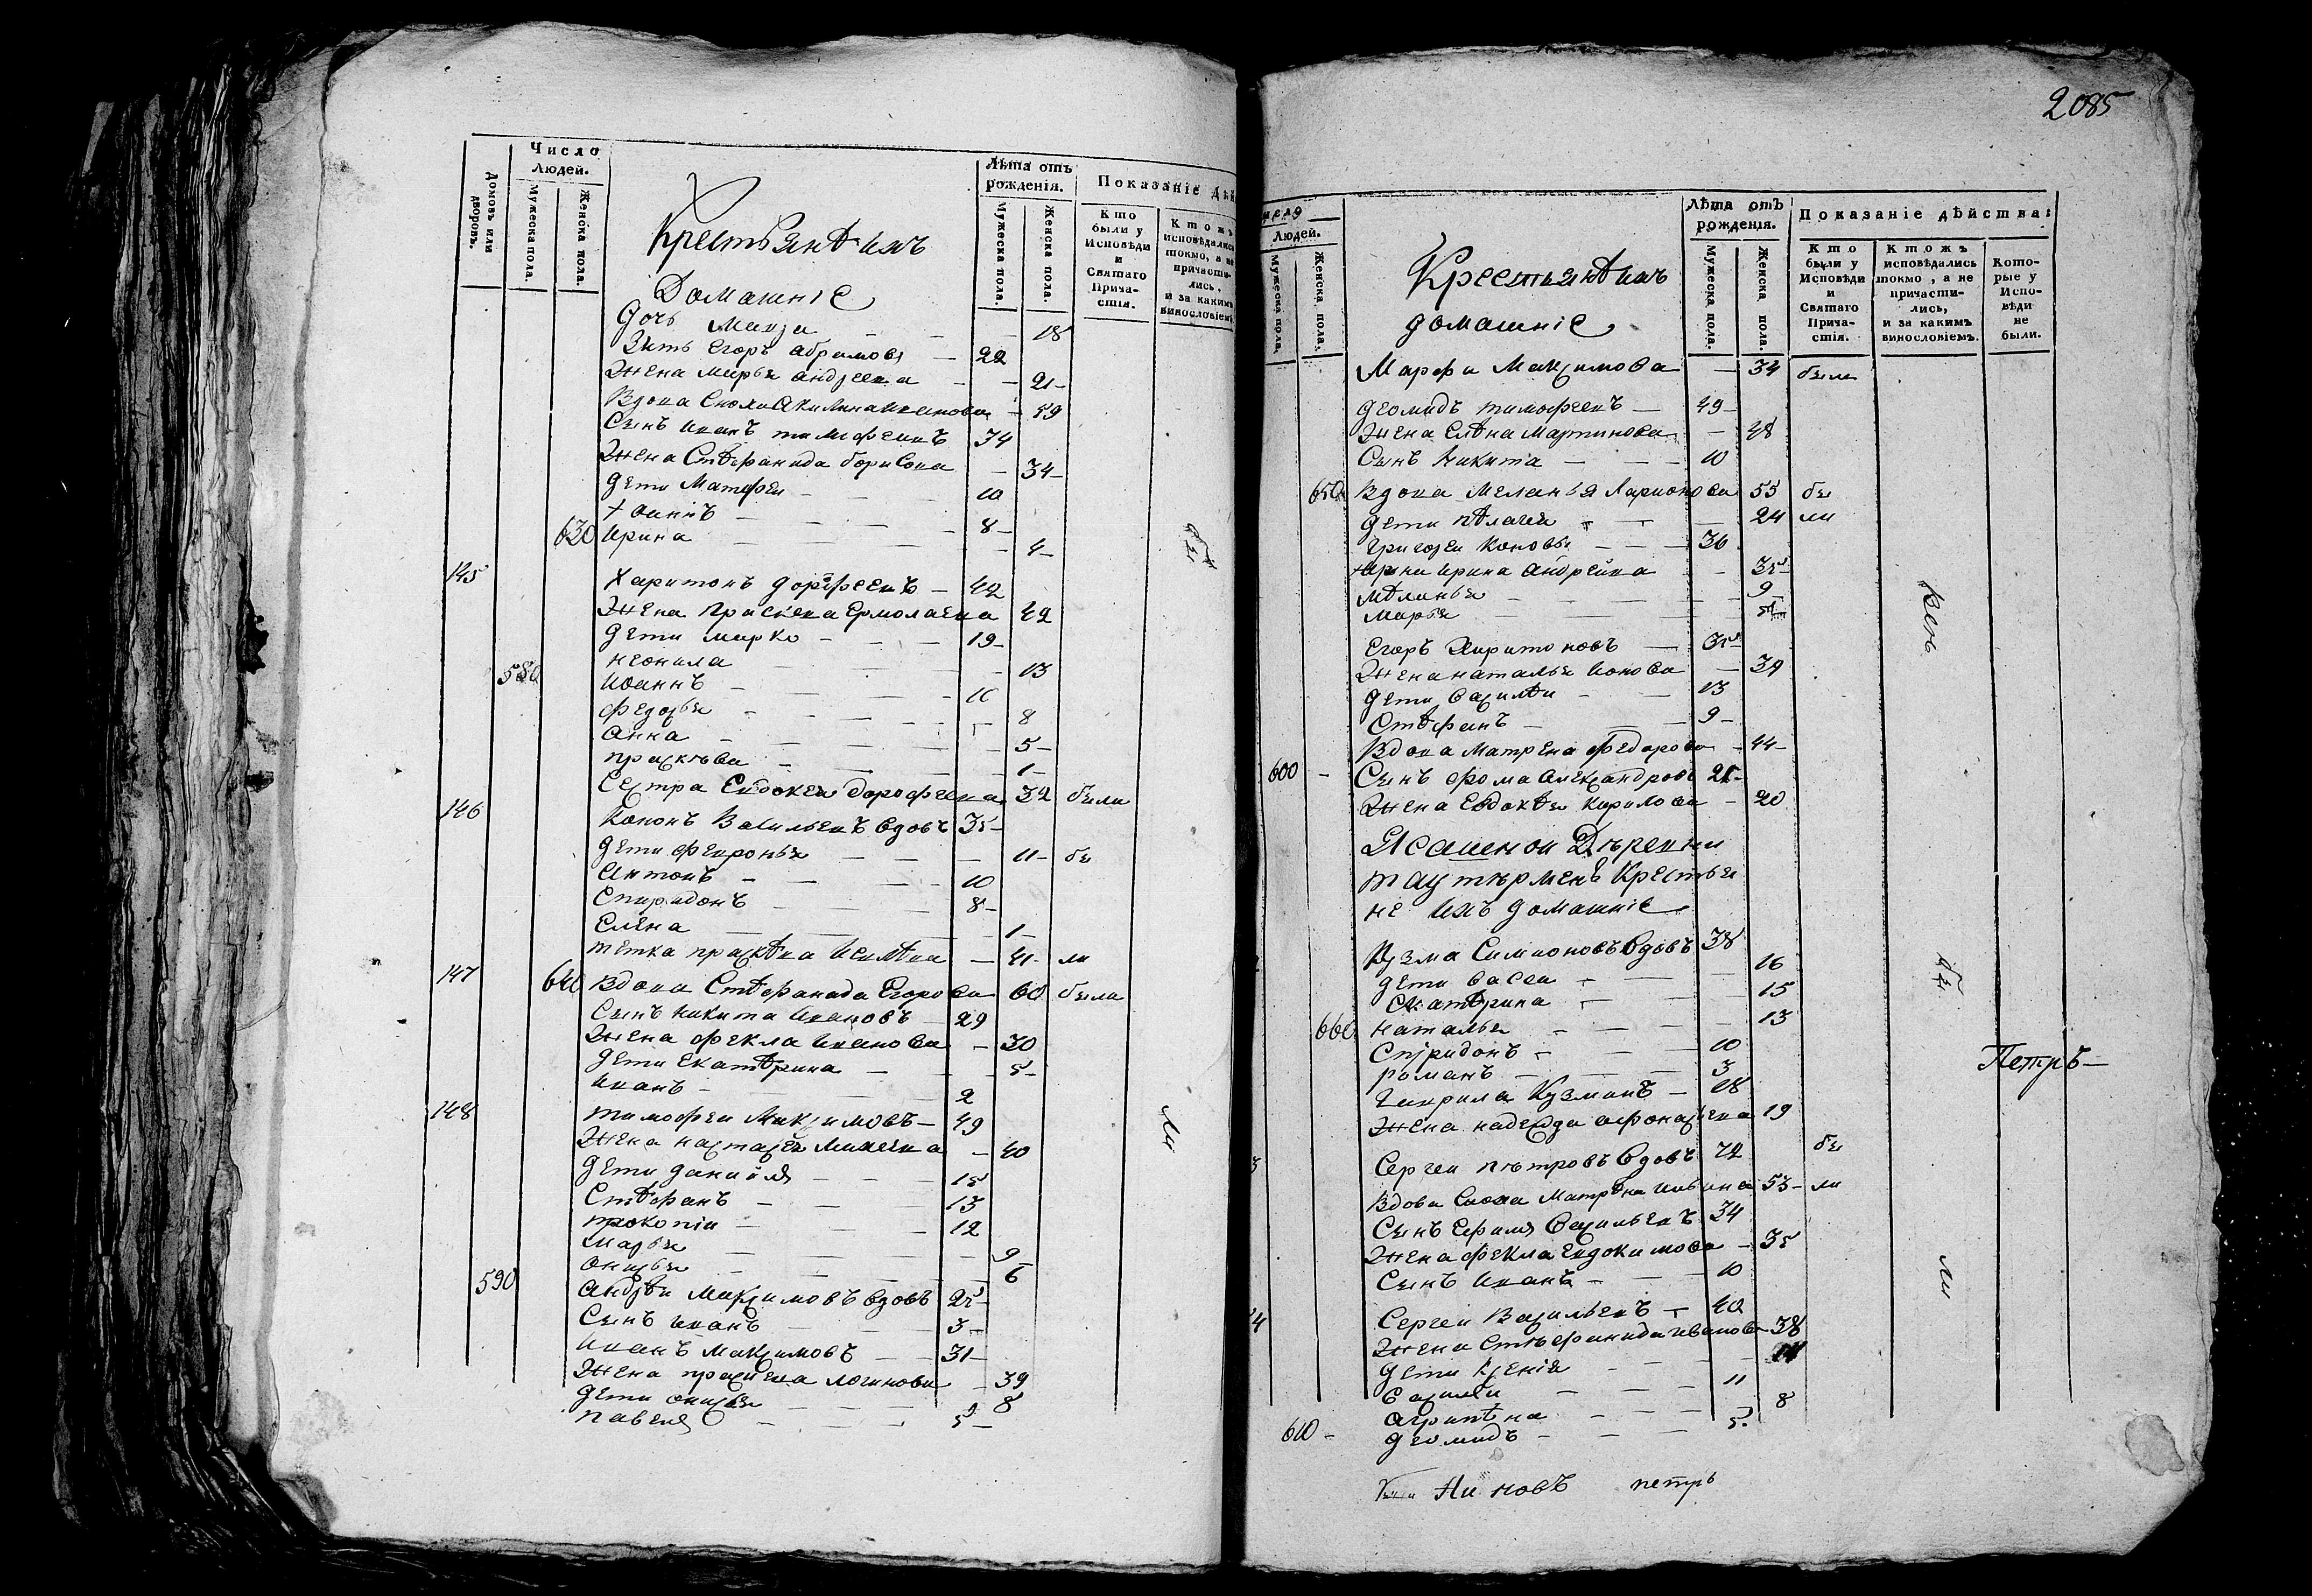 Число
Людей.
Домовъ или дворовъ.
Мужеска пола.
Женска пола.
Лѣта отъ
рожденія.
Мужеска пола.
Женска пола.
Показаніе дѣй
Кто
были у
Исповѣди
и
Святаго
Прича-
стія.
Ктожъ
исповѣдались
токмо, а не
причасти-
лись,
и за какимъ
винословіемъ
Крестьянѣ ихъ
Домашніе
дочь 18
Зять Егоръ Абрамовъ 22
Жена Марья Андреева 21
Вдова Сноха Акилина Иванова 59
Сынъ Иванъ Тимофеевъ 34
Жена Стефанида Борисова 34
дети Матфеи 10
Иоаннъ 8
630 Ирина 4
145 Харитонъ Дорофеевъ 42
Жена Прасковья Ермолаева 42
дети Марко 19
неонила 13
580 Иоаннъ 10
федосья 8
Анна 5
прасковья 1
Сестра Евдокея Дорофеева 32 были
146 Кононъ Васильевъ вдовъ 35
дети феврония 11 бы
Антонъ 10
Спиридонъ 8
Елена 1
тетка 41 ли
147 640 Вдова Стефанида Егорова 60 были
Сынъ Никита Ивановъ 29
Жена фекла Иванова 30
дети Екатерина 5
Иванъ 2
148 тимофеи Максимовъ 49
Жена настасья 40
дети даниилъ 15
Стефанъ 13
прокопіи 12
Марья 9
онисья 6
590 Андрѣи Максимовъ вдовъ 25
Сынъ Иванъ 3
Иванъ Максимовъ 31
Жена Логинова 39
дети онисья 8
павелъ 5
бы
ли
2085
Людей.
Мужеска пола.
Женска пола.
Лѣта отъ
рожденія.
Мужеска пола.
Женска пола.
Показаніе дѣйства:
Кто
были у
Исповѣди
и
Святаго
Прича-
стія.
Ктожъ
исповѣдались
токмо, а не
причасти-
лись,
и за какимъ
винословіемъ.
Кото-
рые у
Испо-
вѣди
не
были.
Крестьянѣ ихъ
домашніе
Марфа Максимова 34 были
деомидъ тимофеевъ 49
Жена Елена Мартинова 48
Сынъ Никита 10
650 Вдова Меланья Ларионова 55 бы
дети пелагея 24 ли
Григореи Кононовъ 36
Жена Ирина Андреева 35
Меланья 9
Марья
Егоръ Харитоновъ 35
Жена наталья Ионова 39
дети Василѣи 13
Стефанъ 9
Вдова Матрена федорова 44
600 Сынъ фома Александровъ 25
Жена Евдокея Кирилова 20
Ясашнои Дѣревни
Таутѣрменъ Крестья
не ихъ домашніе
Кузма Симионовъ вдовъ 38
дети Васса 16
Екатерина 15
660 наталья 13
Спиридонъ 10
романъ 3
Гаврила Кузминъ 18
Жена надежда афонасьева 19
Сергеи петровъ вдовъ 72 бы
Вдова Сноха Матрена Ильина 53 ли
Сынъ Ефимъ Васильевъ 34
Жена фекла Евдокимова 35
Сынъ Иванъ 10
Сергеи Васильевъ 40
Жена Стефанида Иванова 38
дети Ксенія 14
Василѣи 11
Агрипена 8
610 деомидъ 5
бы
ли
Петръ
петръ